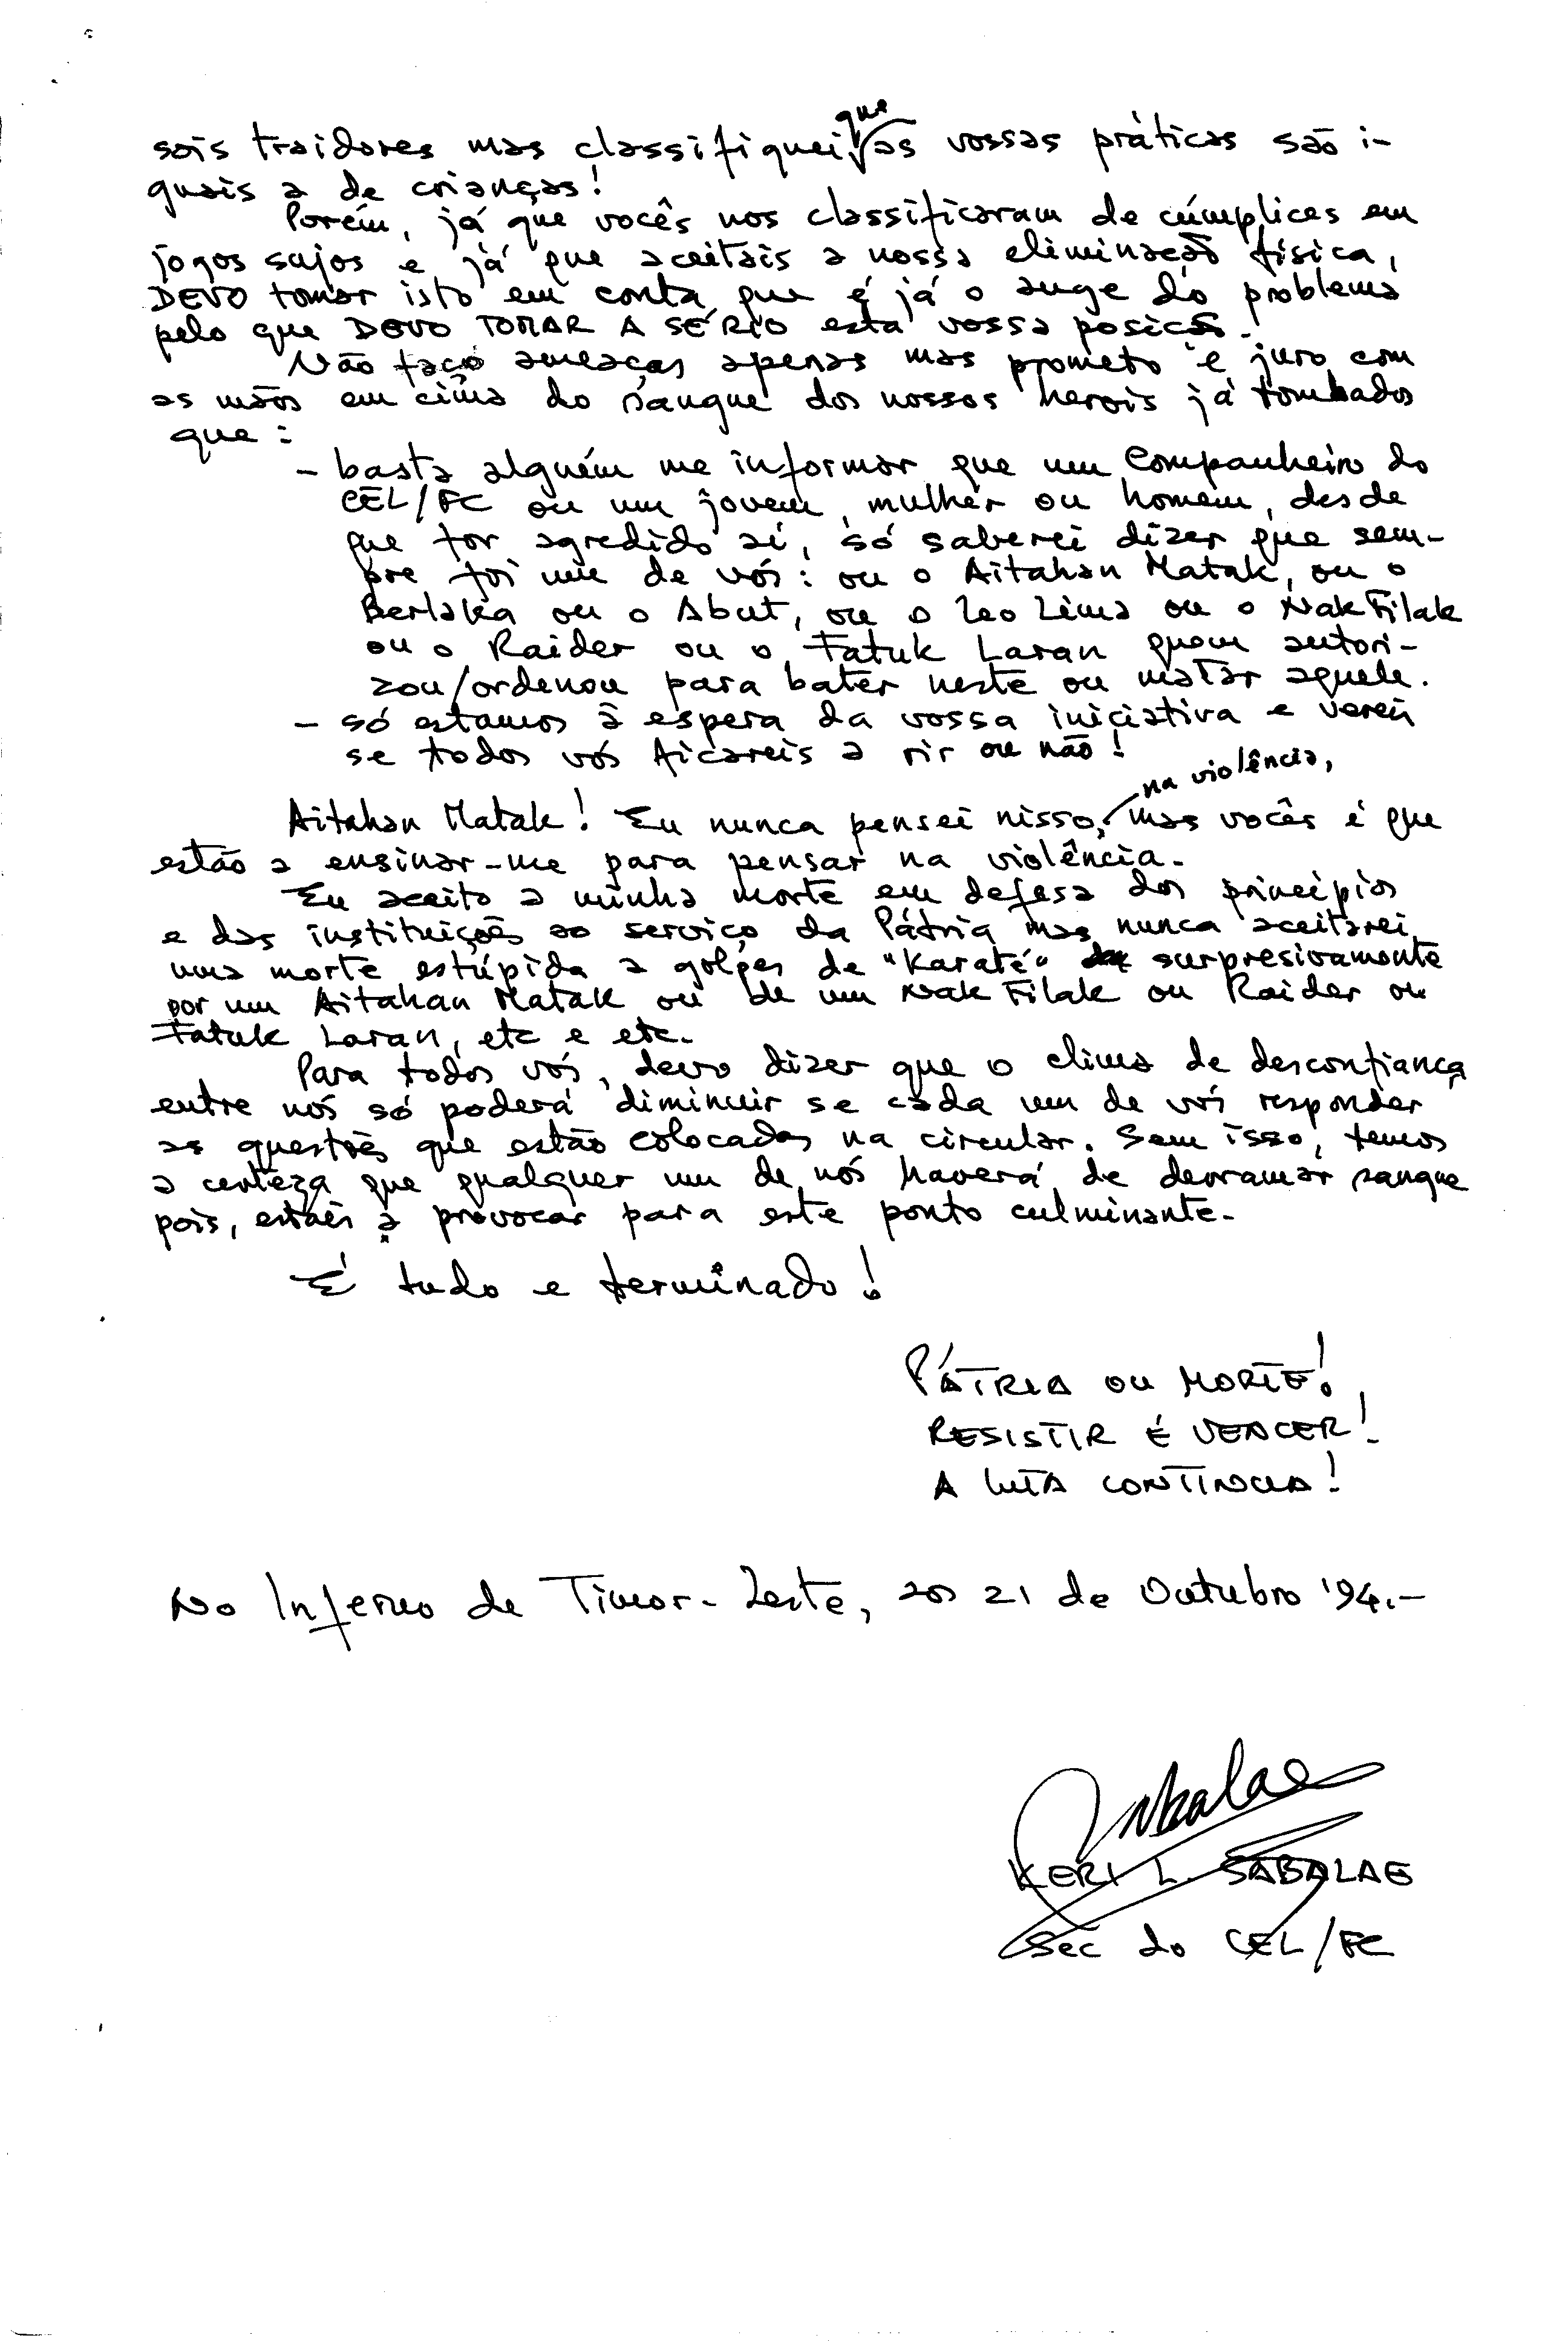 sois traidores mas classifiquei que as vossas práticas são i-
guais a de crianças!
Porém, já que vocês nos classificaram de cúmplices em
jogos sujos e já que aceitais a nossa eliminação física,
DEVO tomar isto em conta que é já o auge do problema
pelo que DEVO TOMAR A SÉRIO esta vossa posição.
Não faço ameaças apenas mas prometo e juro com
as mãos em cima do sangue dos nossos herois já tombados
que:
- basta alguém me informar que um companheiro do
CEL/FC ou um jovem, mulher ou homem, desde
que for agredido aí, só saberei dizer que sem-
pre foi um de vós: ou o Aitahan Matak, ou o
Berlaka ou o Abut, ou o Leo Lima ou o Nak Filak
ou o Raider ou o Fatuk Laran quem autori-
zou/ordenou para bater neste ou matar aquele.
- só estamos à espera da vossa iniciativa e vereis
se todos vós ficareis a rir ou não!
Aitahan Matak! Eu nunca pensei nisso, na violência, mas vocês é que
estão a ensinar-me para pensar na violência.
Eu aceito a minha morte em defesa dos princípios
e das instituições ao serviço da Pátria mas nunca aceitarei
uma morte estúpida a golpes de "Karaté" surpresivamente
por um Aitahan Matak ou de um Nak Filak ou Raider ou
Fatuk Laran, etc e etc.
Para todos vós, devo dizer que o clima de desconfiança
entre nós só poderá diminuir se cada um de vós responder
as questões que estão colocadas na circular. Sem isso, temos
a certeza que qualquer um de nós haverá de derramar sangue
pois, estais a provocar para este ponto culminante.
É tudo e terminado!
PÁTRIA OU MORTE!
RESISTIR É VENCER!
A LUTA CONTINUA!
No Inferno de Timor-Leste, aos 21 de Outubro '94.-
KERI L. SABALAE
Sec do CEL/FC